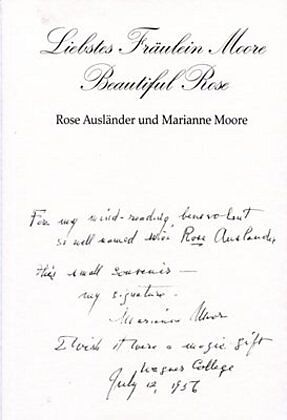 Liebstes Fräulein Moore
Beautiful Rose
Rose Ausländer und Marianne Moore
For my mind-reading benevolent
so well named Rose Auslander
this small souvenir —
my signature.
Marianne Moore
I wish it were a magic gift
Wagner College
July 12, 1956